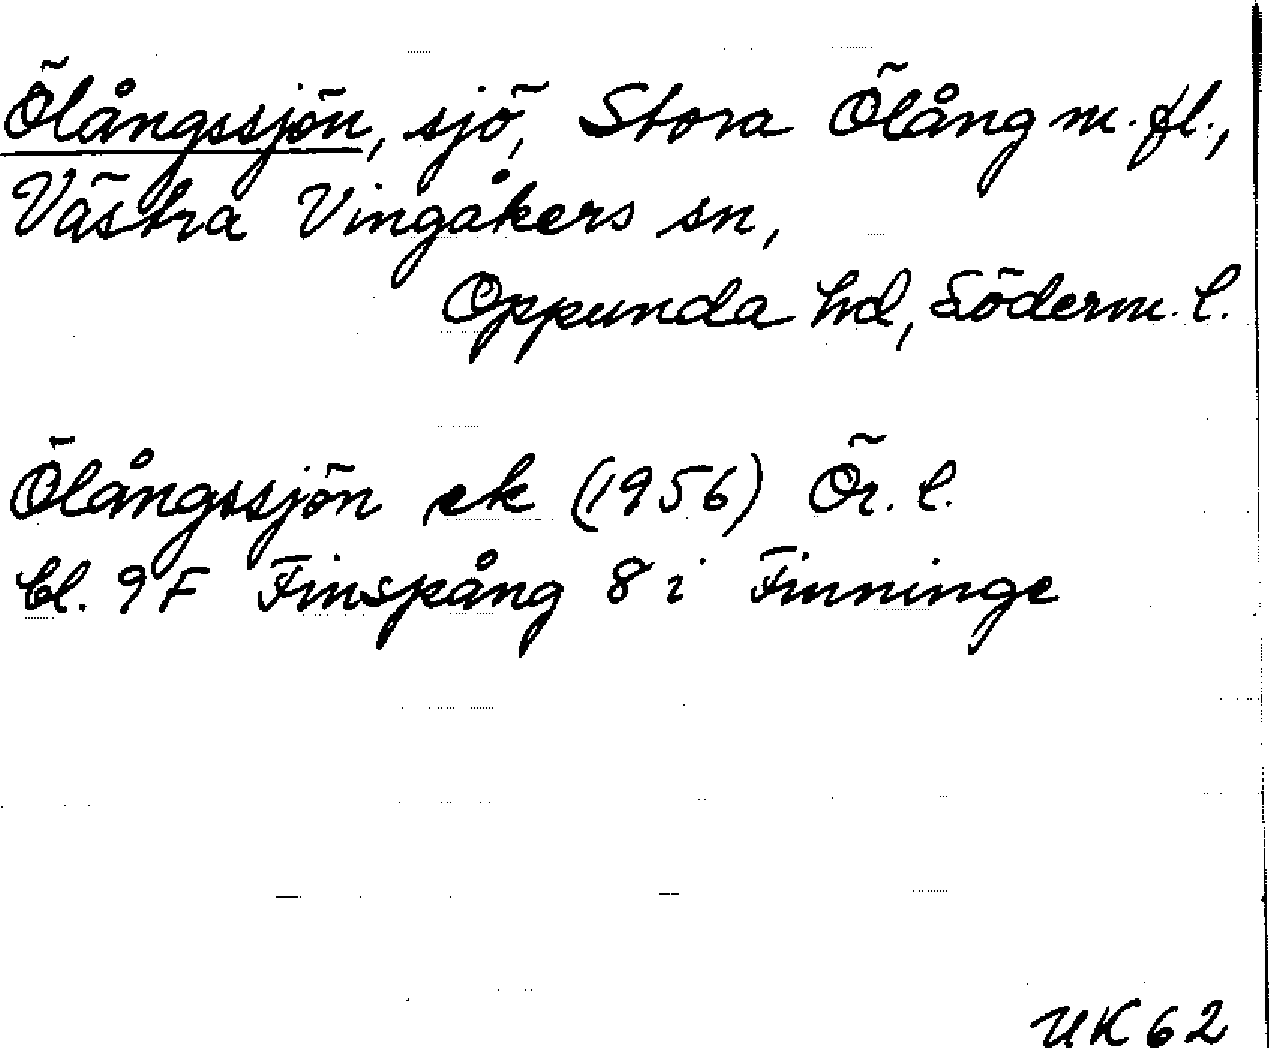 Ölångssjön, sjö, Stora Ölång m. fl.,
Västra Vingåkers sn,
Oppunda hd, Söderm. l.
Ölångssjön ek (1956) Ör. l.
bl. 9F Finspång 8 i Finninge
UK 62